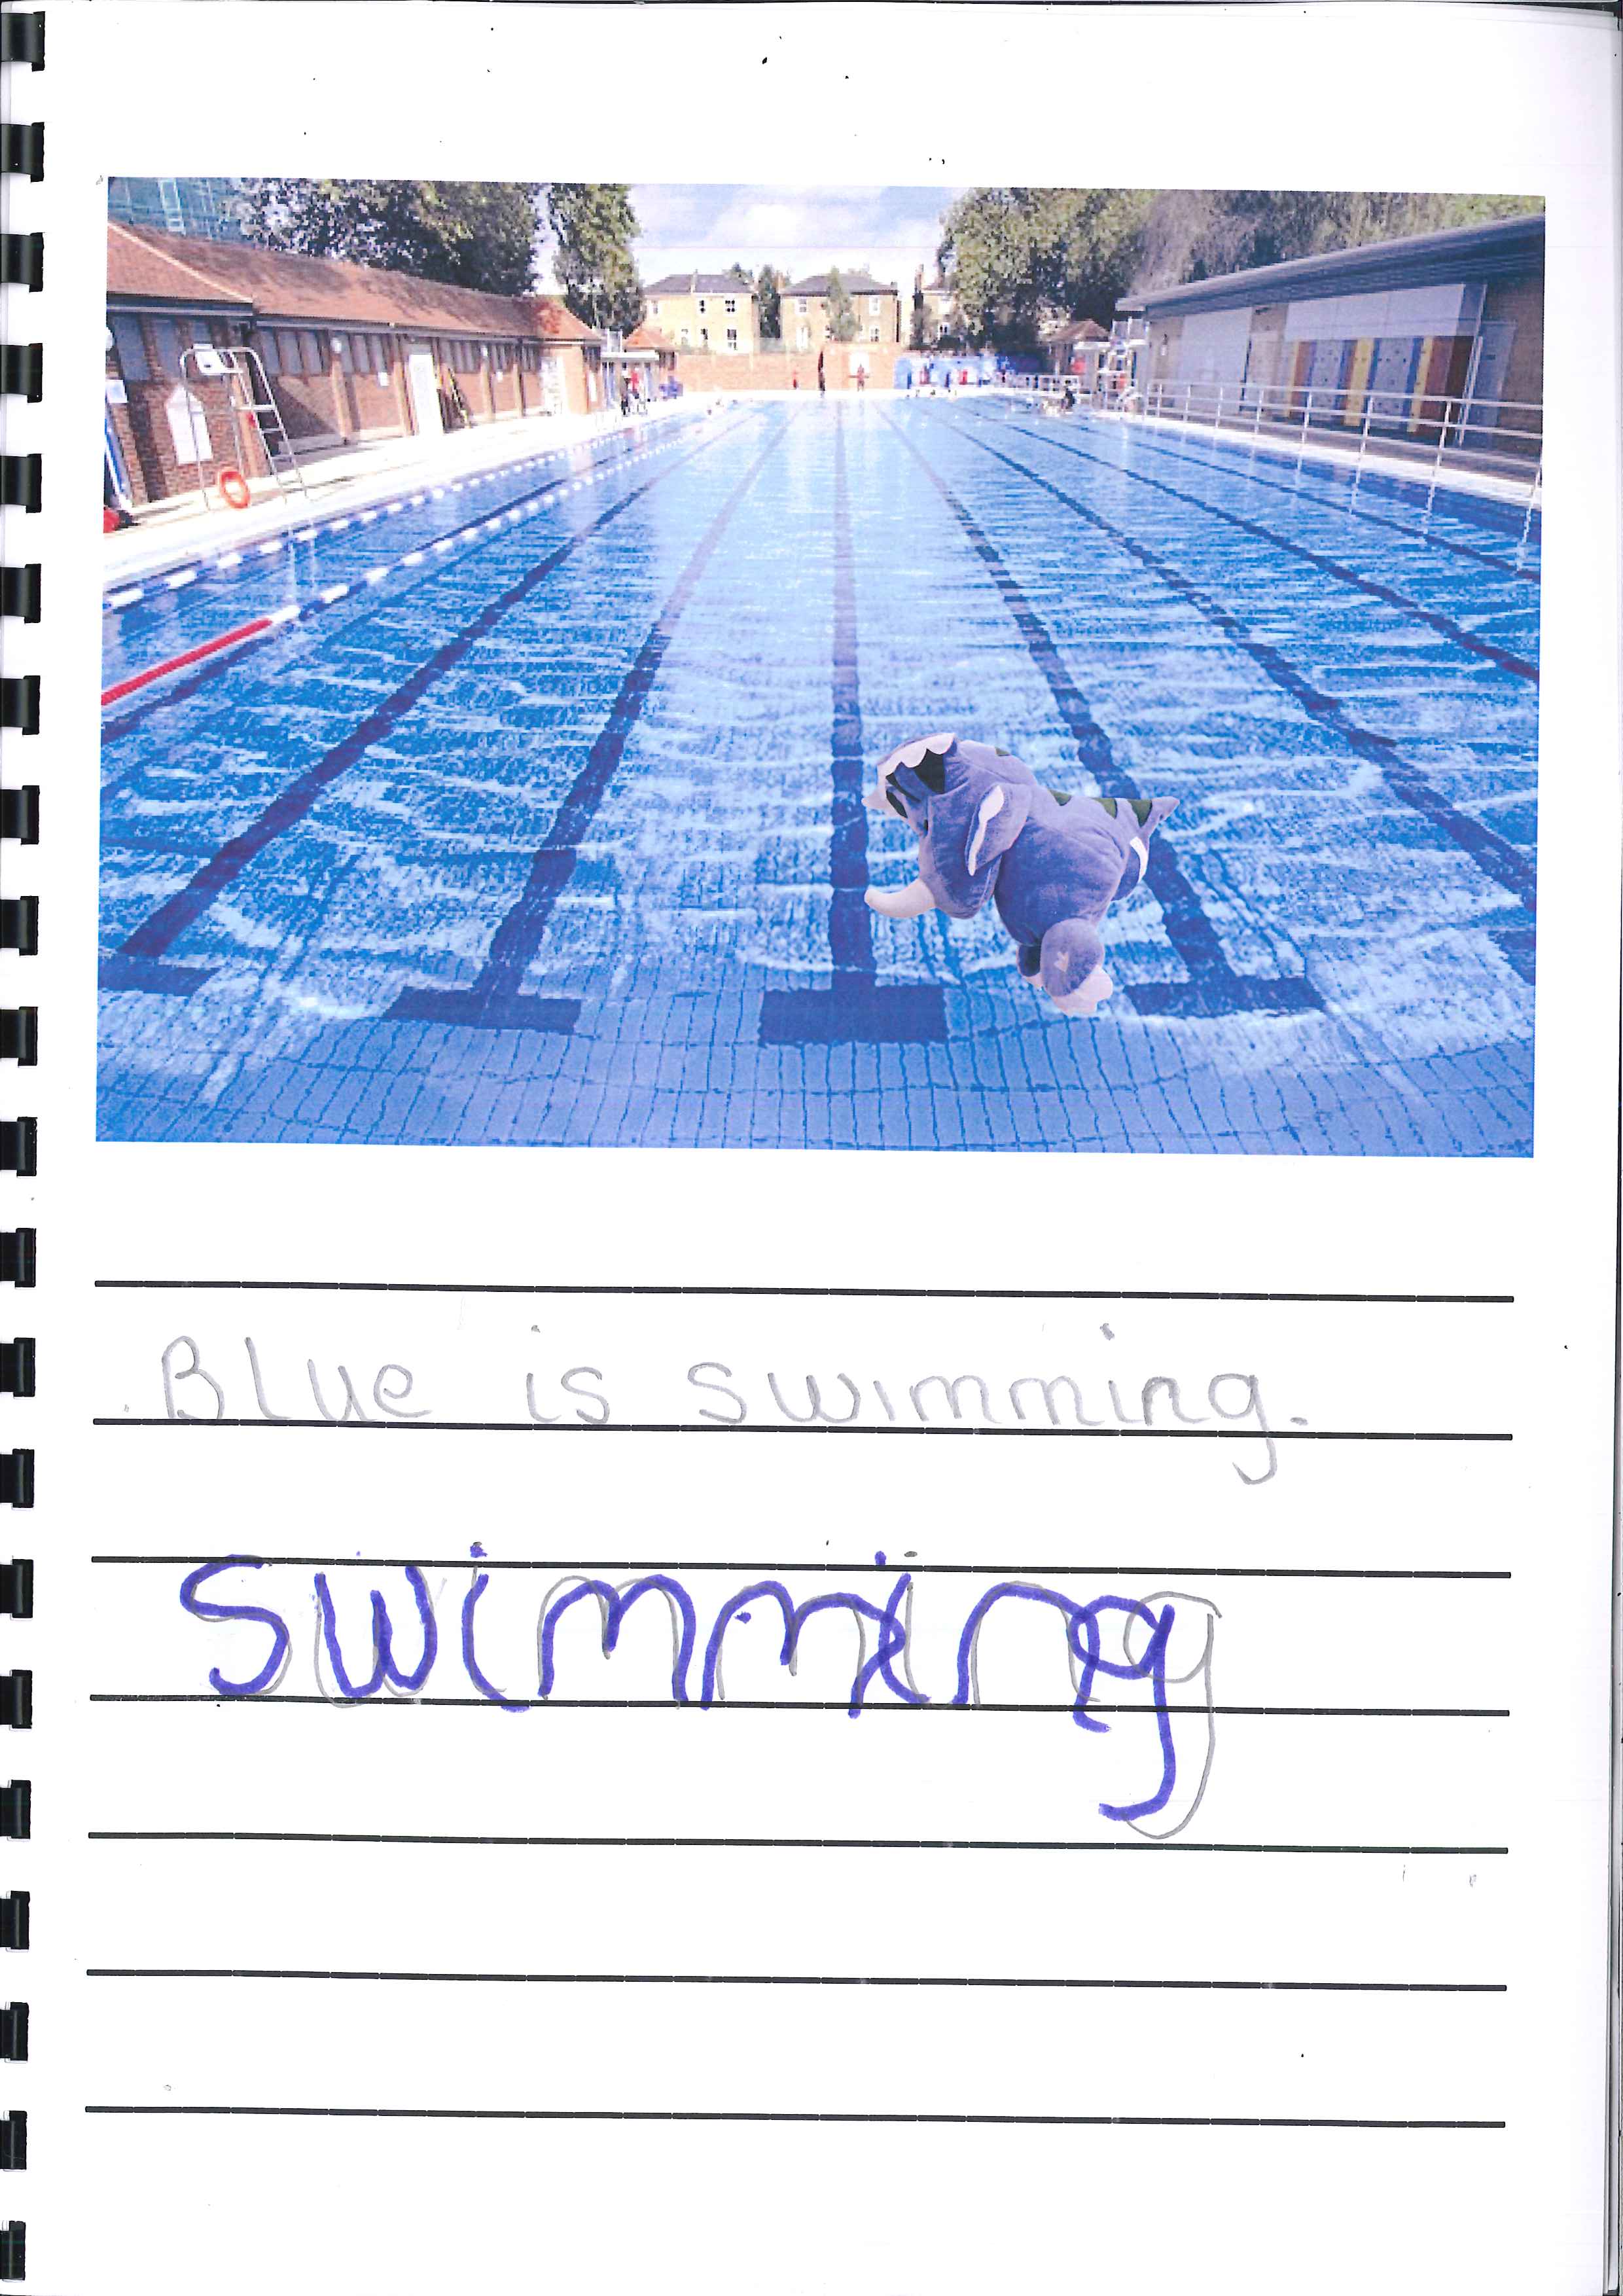 Blue is swimming.
swimming